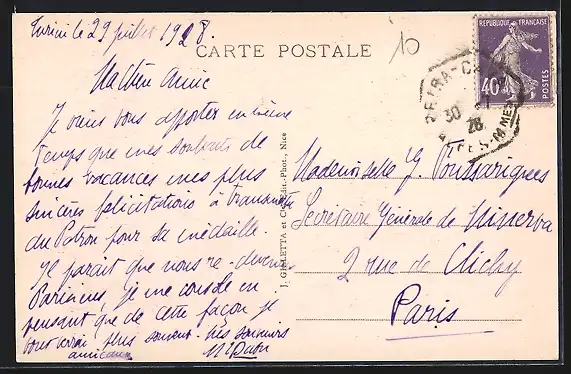 le 29 juillet 1928.
CARTE POSTALE
Ma Chère Amie
Je viens vous apporter en même
temps que mes souhaits de
bonnes vacances mes plus
sincères félicitations à transmettre
au Patron pour sa médaille.
Il paraît que nous re-devenons
Parisiens, je me console en
pensant que de cette façon je
vous verrai plus souvent. Très
amicaux
J. GILLETTA et Cie, Édit.-Phot., Nice
RÉPUBLIQUE FRANÇAISE
POSTES
40
PEIRA-C
30
28
ALPES-MMES
Mademoiselle G.
Secrétaire Générale de Minerva
2 rue de Clichy
Paris